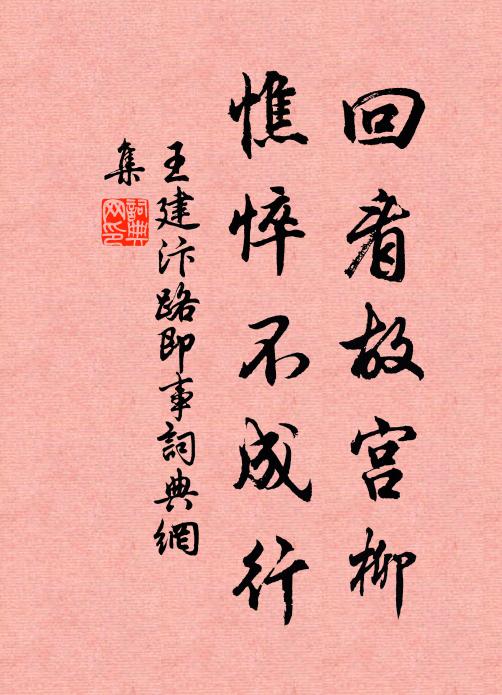 回看故宫柳
憔悴不成行
王建汴路即事詞典網
集
詞典
网印